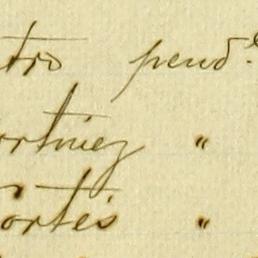 tro pend.
ortinez "
Cortés "